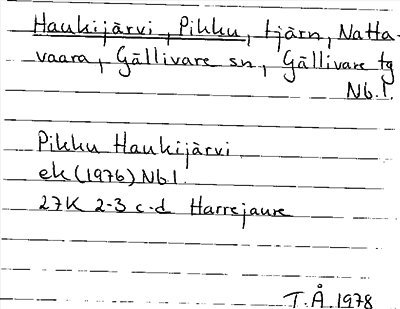 Haukijärvi, Pikku, tjärn, Natta-
vaara, Gällivare sn, Gällivare tg
Nb.l.
Pikku Haukijärvi
ek (1976) Nb l.
27K 2-3 c-d Harrejaure
T.Å. 1978